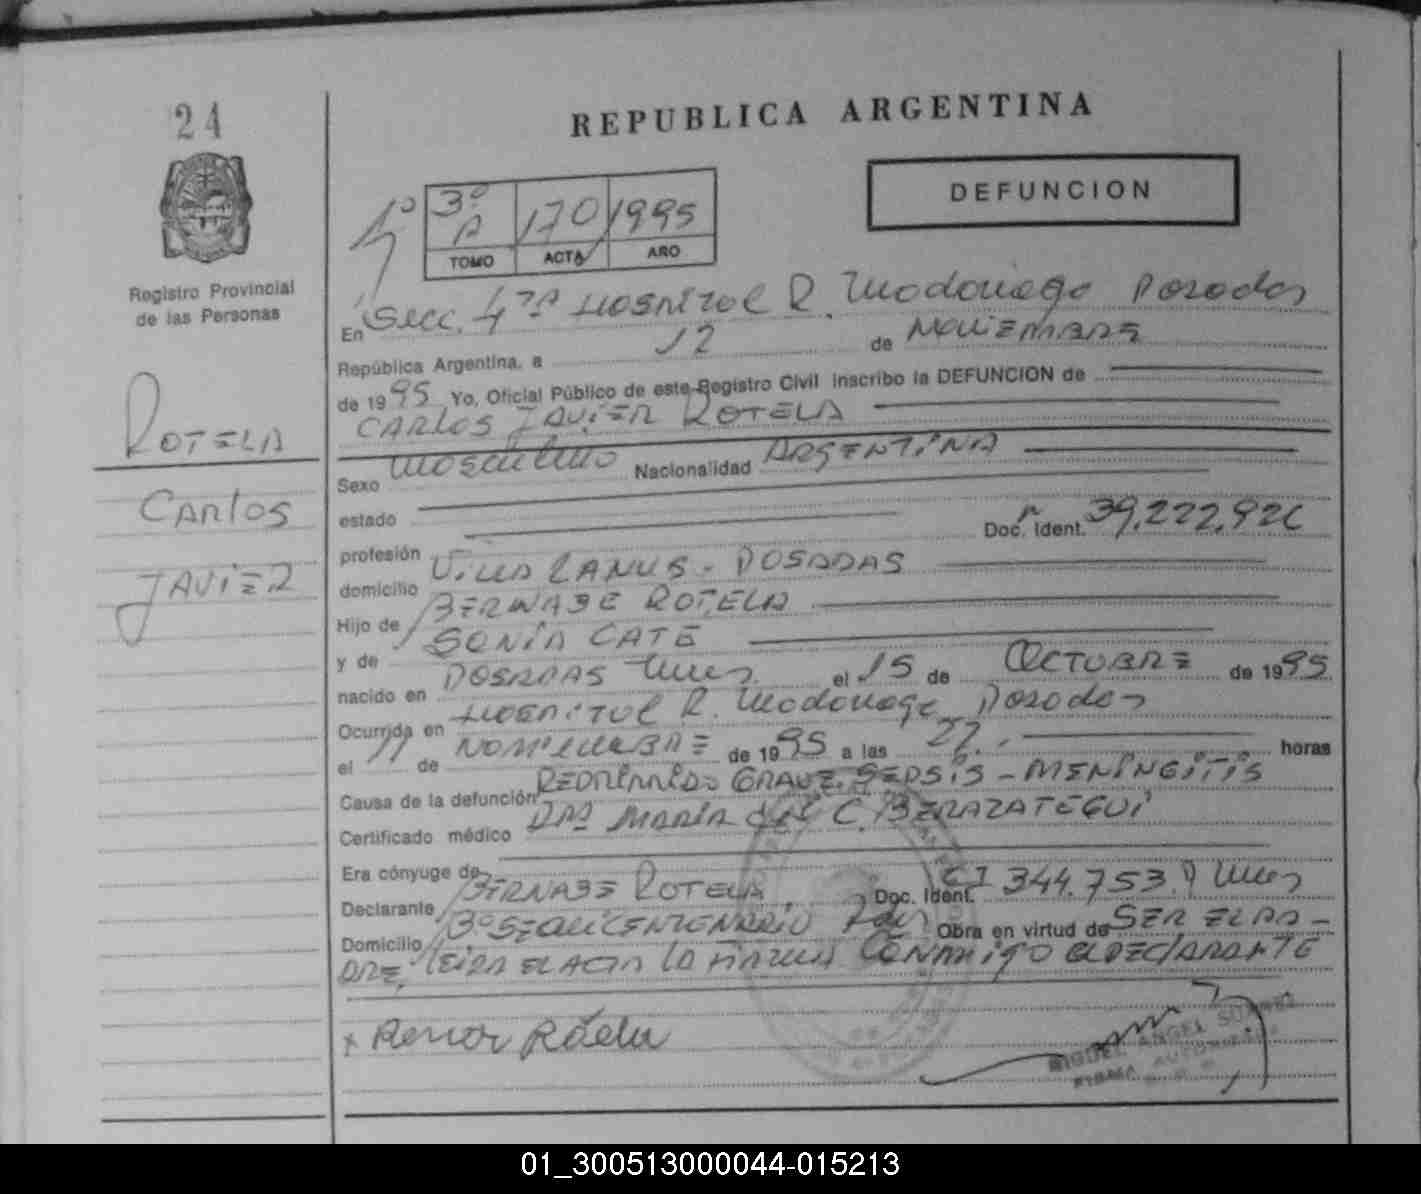 24
REPUBLICA ARGENTINA
DEFUNCION
1º
3º A 170 1995
TOMO ACTA AÑO
Registro Provincial
de las Personas
ROTELA
CARLOS
JAVIER
En Secc. 4ta Hospital R. Madariaga Posadas
República Argentina, a 12 de NOVIEMBRE
de 1995 Yo, Oficial Público de este Registro Civil inscribo la DEFUNCION de
CARLOS JAVIER ROTELA
Sexo Masculino Nacionalidad ARGENTINA
estado
profesión Doc. Ident. 39.222.926
domicilio Villa LANUS - POSADAS
Hijo de BERNABE ROTELA
y de SONIA CATE
nacido en POSADAS Mnes. el 15 de OCTUBRE de 1995
Ocurrida en Hospital R. Madariaga Posadas
el 11 de NOVIEMBRE de 1995 a las 22. horas
Causa de la defunción GRAVE. SEPSIS - MENINGITIS
Certificado médico DRA MARIA del C. BERAZATEGUI
Era cónyuge de
Declarante BERNABE ROTELA Doc. Ident. CI 344.753. Mnes
Domicilio Bº SESQUICENTENARIO Pdas Obra en virtud de SER EL PA-
DRE, leida EL ACTA la FIRMA CONMIGO EL DECLARANTE
MIGUEL ANGEL SUAREZ
FIRMA AUTORIZADA
01_300513000044-015213